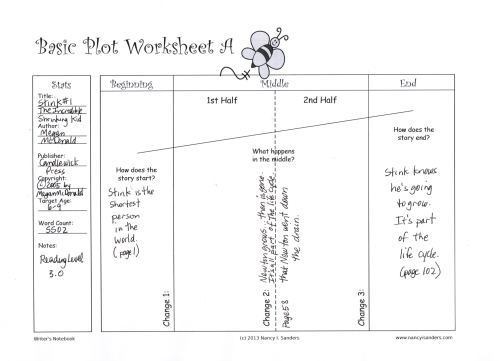 Basic Plot Worksheet A
Stats
Title:
Stink #1
The Incredible
Shrinking Kid
Author:
Megan
McDonald
Publisher:
Candlewick
Press
Copyright:
©2005 by
Megan McDonald
Target Age:
6-9
Word Count:
5502
Notes:
Reading Level
3.0
Beginning
How does the
story start?
Stink is the
shortest
person
in the
world.
(page 1)
Change 1:
Middle
1st Half
2nd Half
What happens
in the middle?
Change 2:
Newton grows, then is gone.
It's all part of the life cycle
that Newton went down
the drain.
Page 58
Change 3:
End
How does the
story end?
Stink knows
he's going
to grow.
It's part
of the
life cycle.
(page 102)
Writer's Notebook
(c) 2013 Nancy I. Sanders
www.nancyisanders.com